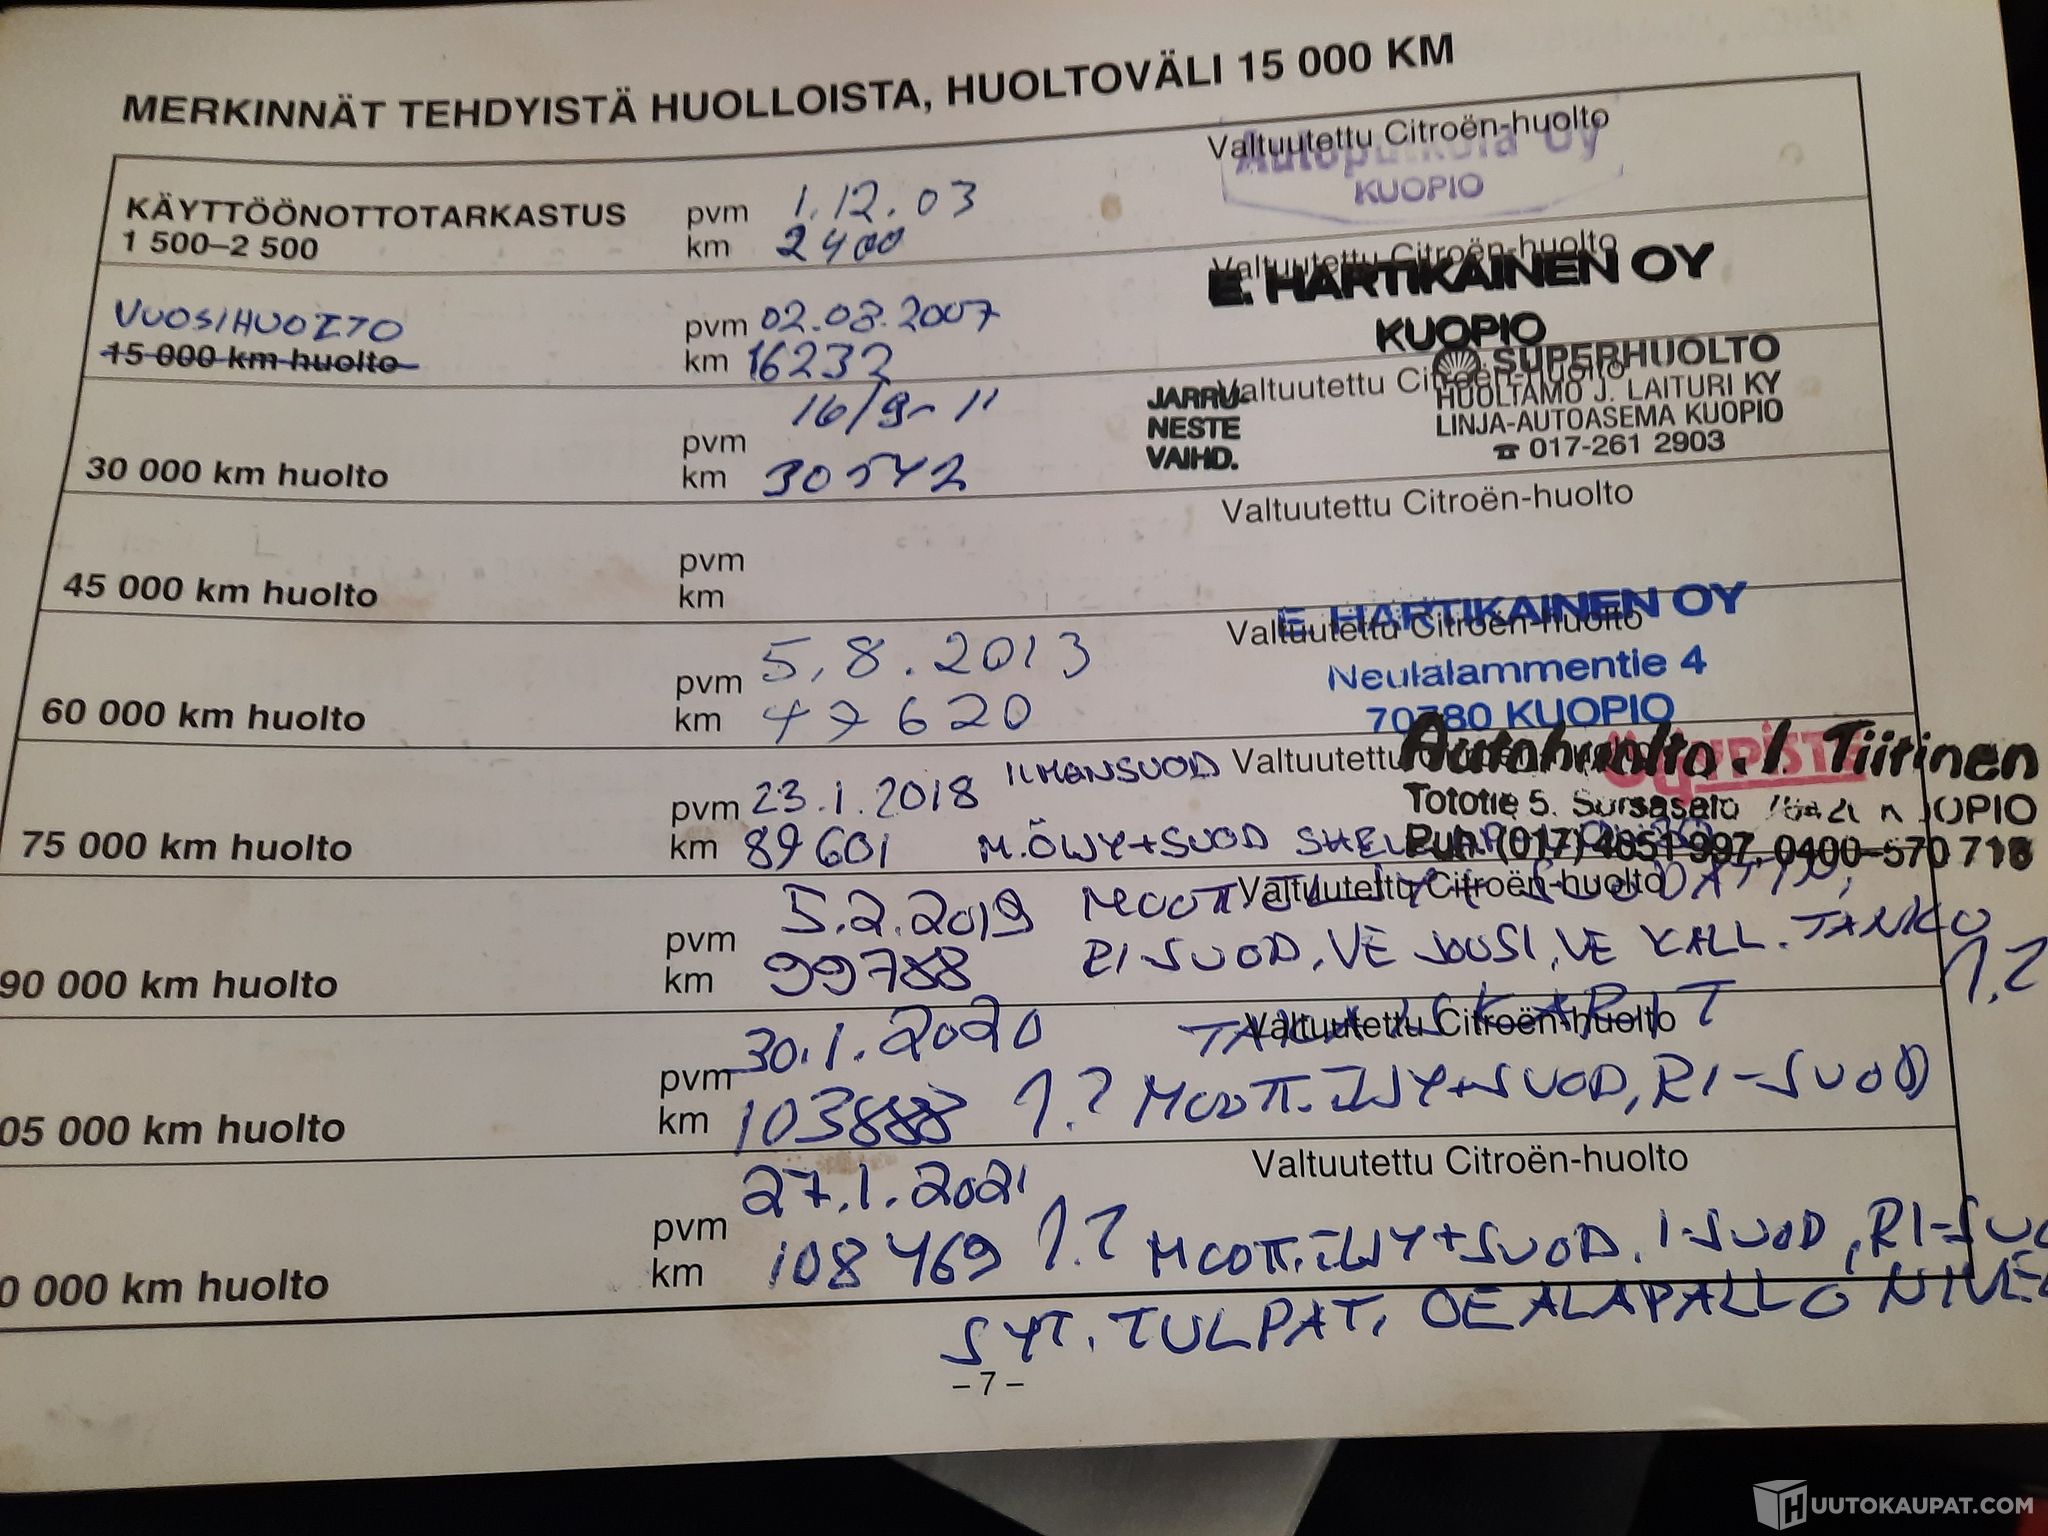 MERKINNÄT TEHDYISTÄ HUOLLOISTA, HUOLTOVÄLI 15 000 KM
Valtuutettu Citroën-huolto
Oy
KUOPIO
KÄYTTÖÖNOTTOTARKASTUS
1 500–2 500
pvm 1.12.03
km 2400
Valtuutettu Citroën-huolto
E. HARTIKAINEN OY
KUOPIO
VUOSIHUOLTO
15 000 km huolto
pvm 02.08.2007
km 16232
Valtuutettu Citroën-huolto
SUPERHUOLTO
HUOLTAMO J. LAITURI KY
LINJA-AUTOASEMA KUOPIO
☎ 017-261 2903
JARRU-
NESTE
VAIHD.
30 000 km huolto
pvm 16/9-11
km 30542
Valtuutettu Citroën-huolto
45 000 km huolto
pvm
km
Valtuutettu Citroën-huolto
E. HARTIKAINEN OY
Neulalammentie 4
70780 KUOPIO
60 000 km huolto
pvm 5.8.2013
km 47620
Valtuutettu
Autohuolto J. Tiitinen
Tototie 5. Sorsasalo KUOPIO
Puh. (017) 4651 997, 0400-570 716
75 000 km huolto
pvm 23.1.2018 ILMANSUOD
km 89601 M.ÖLJY+SUOD
Valtuutettu Citroën-huolto
90 000 km huolto
pvm 5.2.2019
km 99788 RI-SUOD, VE JOUSI, VE KALL. TANKO
Valtuutettu Citroën-huolto
05 000 km huolto
pvm 30.1.2020
km 103888 MOOTT.ÖLJY+SUOD, RI-SUOD
Valtuutettu Citroën-huolto
0 000 km huolto
pvm 27.1.2021
km 108469 MOOTT.ÖLJY+SUOD. I-SUOD, RI-SUO
SYT. TULPAT, OE ALAPALLO NIVEL
– 7 –
HUUTOKAUPAT.COM